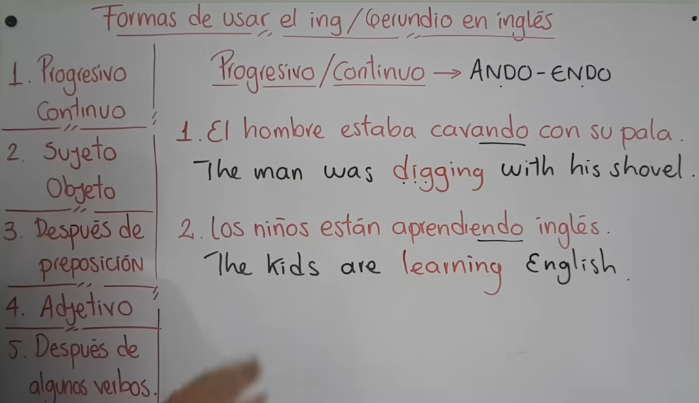 Formas de usar el ing/Gerundio en inglés
1. Progresivo
Continuo
2. Sujeto
Objeto
3. Después de
preposición
4. Adjetivo
5. Después de
algunos verbos.
Progresivo/Continuo → ANDO-ENDO
1. El hombre estaba cavando con su pala.
The man was digging with his shovel.
2. Los niños están aprendiendo inglés.
The kids are learning English.